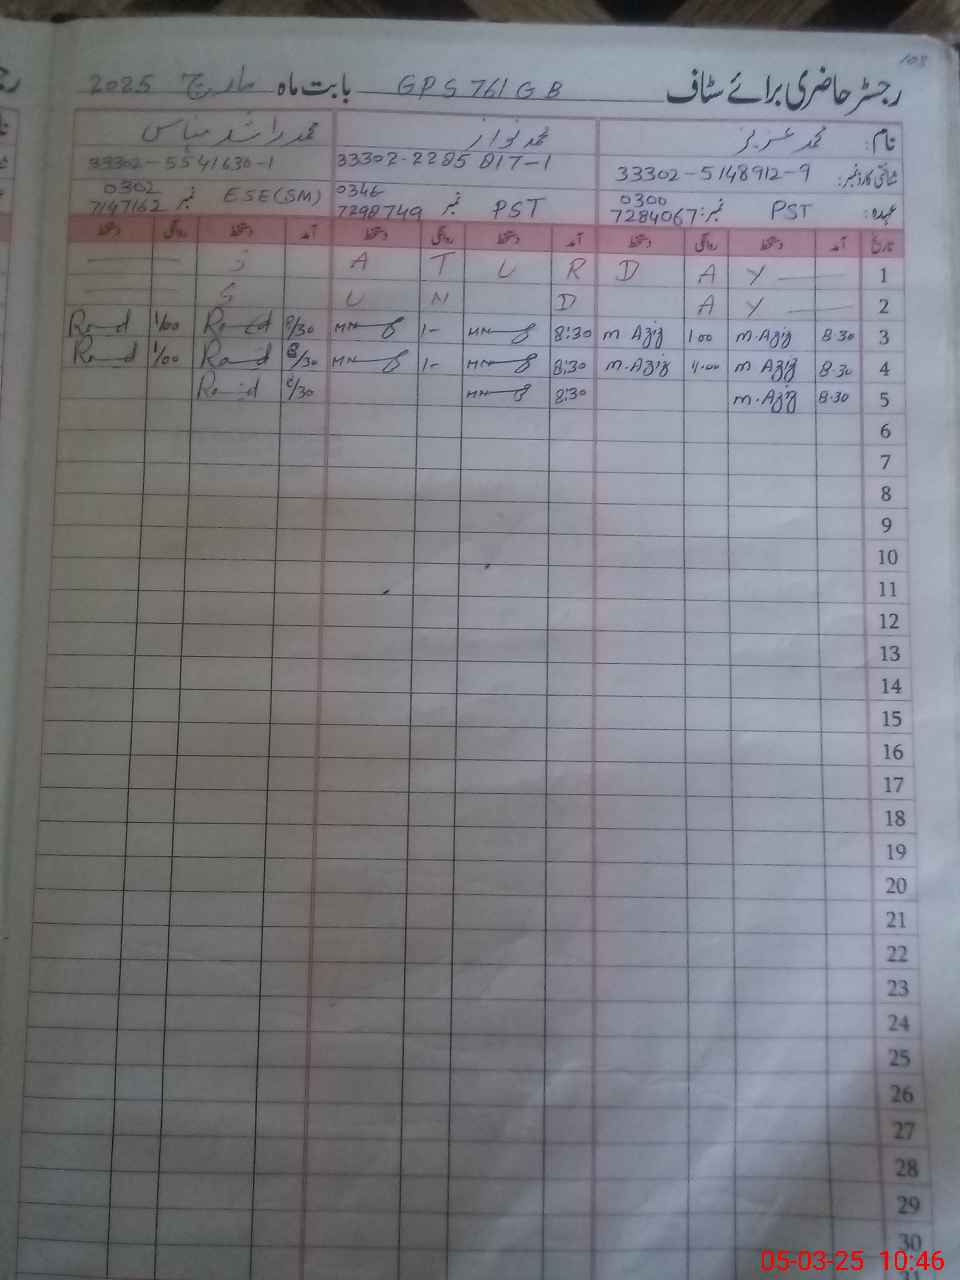 108
رجسٹر حاضری برائے سٹاف GPS 761 GB بابت ماہ مارچ 2025
نام: محمد عزیز محمد نواز محمد راشد عباس
شناختی کارڈ نمبر: 33302-5148912-9 33302-2285817-1 33302-5541630-1
عہدہ: PST نمبر: 0300 7284067 PST نمبر 0346 7298749 ESE(SM) نمبر 0302 7147162
تاریخ آمد دستخط روانگی دستخط آمد دستخط روانگی دستخط آمد دستخط روانگی دستخط
1 S A T U R D A Y
2 S U N D A Y
3 8:30 M.Aziz 1:00 M.Aziz 8:30 1- 8/30 Rashid 1/00 Rashid
4 8:30 M.Aziz 1:00 M.Aziz 8:30 1- 8/30 Rashid 1/00 Rashid
5 8:30 M.Aziz 8:30 8/30 Rashid
6
7
8
9
10
11
12
13
14
15
16
17
18
19
20
21
22
23
24
25
26
27
28
29
30
05-03-25 10:46